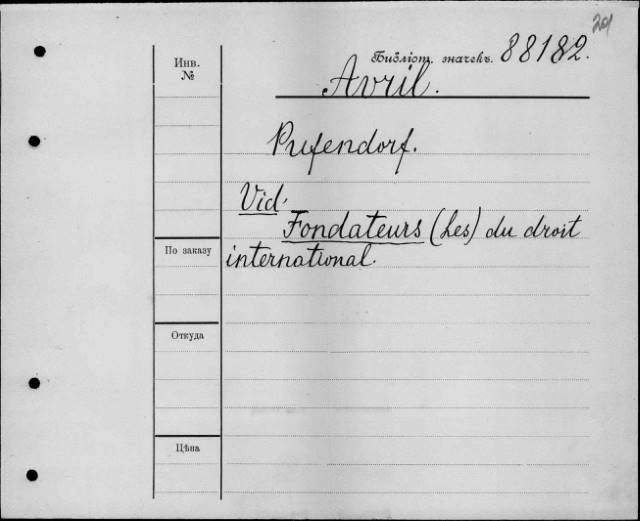 201
Инв. №
Библіот. значекъ. 88182.
Avril.
Pufendorf.
Vid.
Fondateurs (Les) du droit
international.
По заказу
Откуда
Цѣна